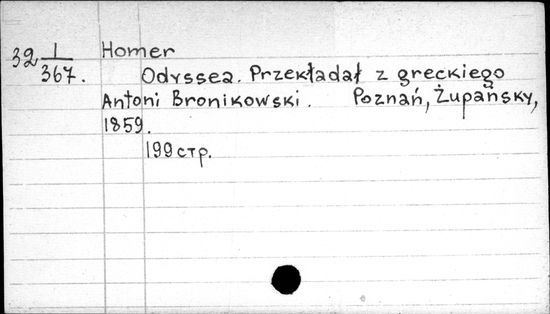 32 1/367.
Homer
Odyssea. Przekładał z greckiego
Antoni Bronikowski. Poznań, Żupański,
1859.
199 стр.